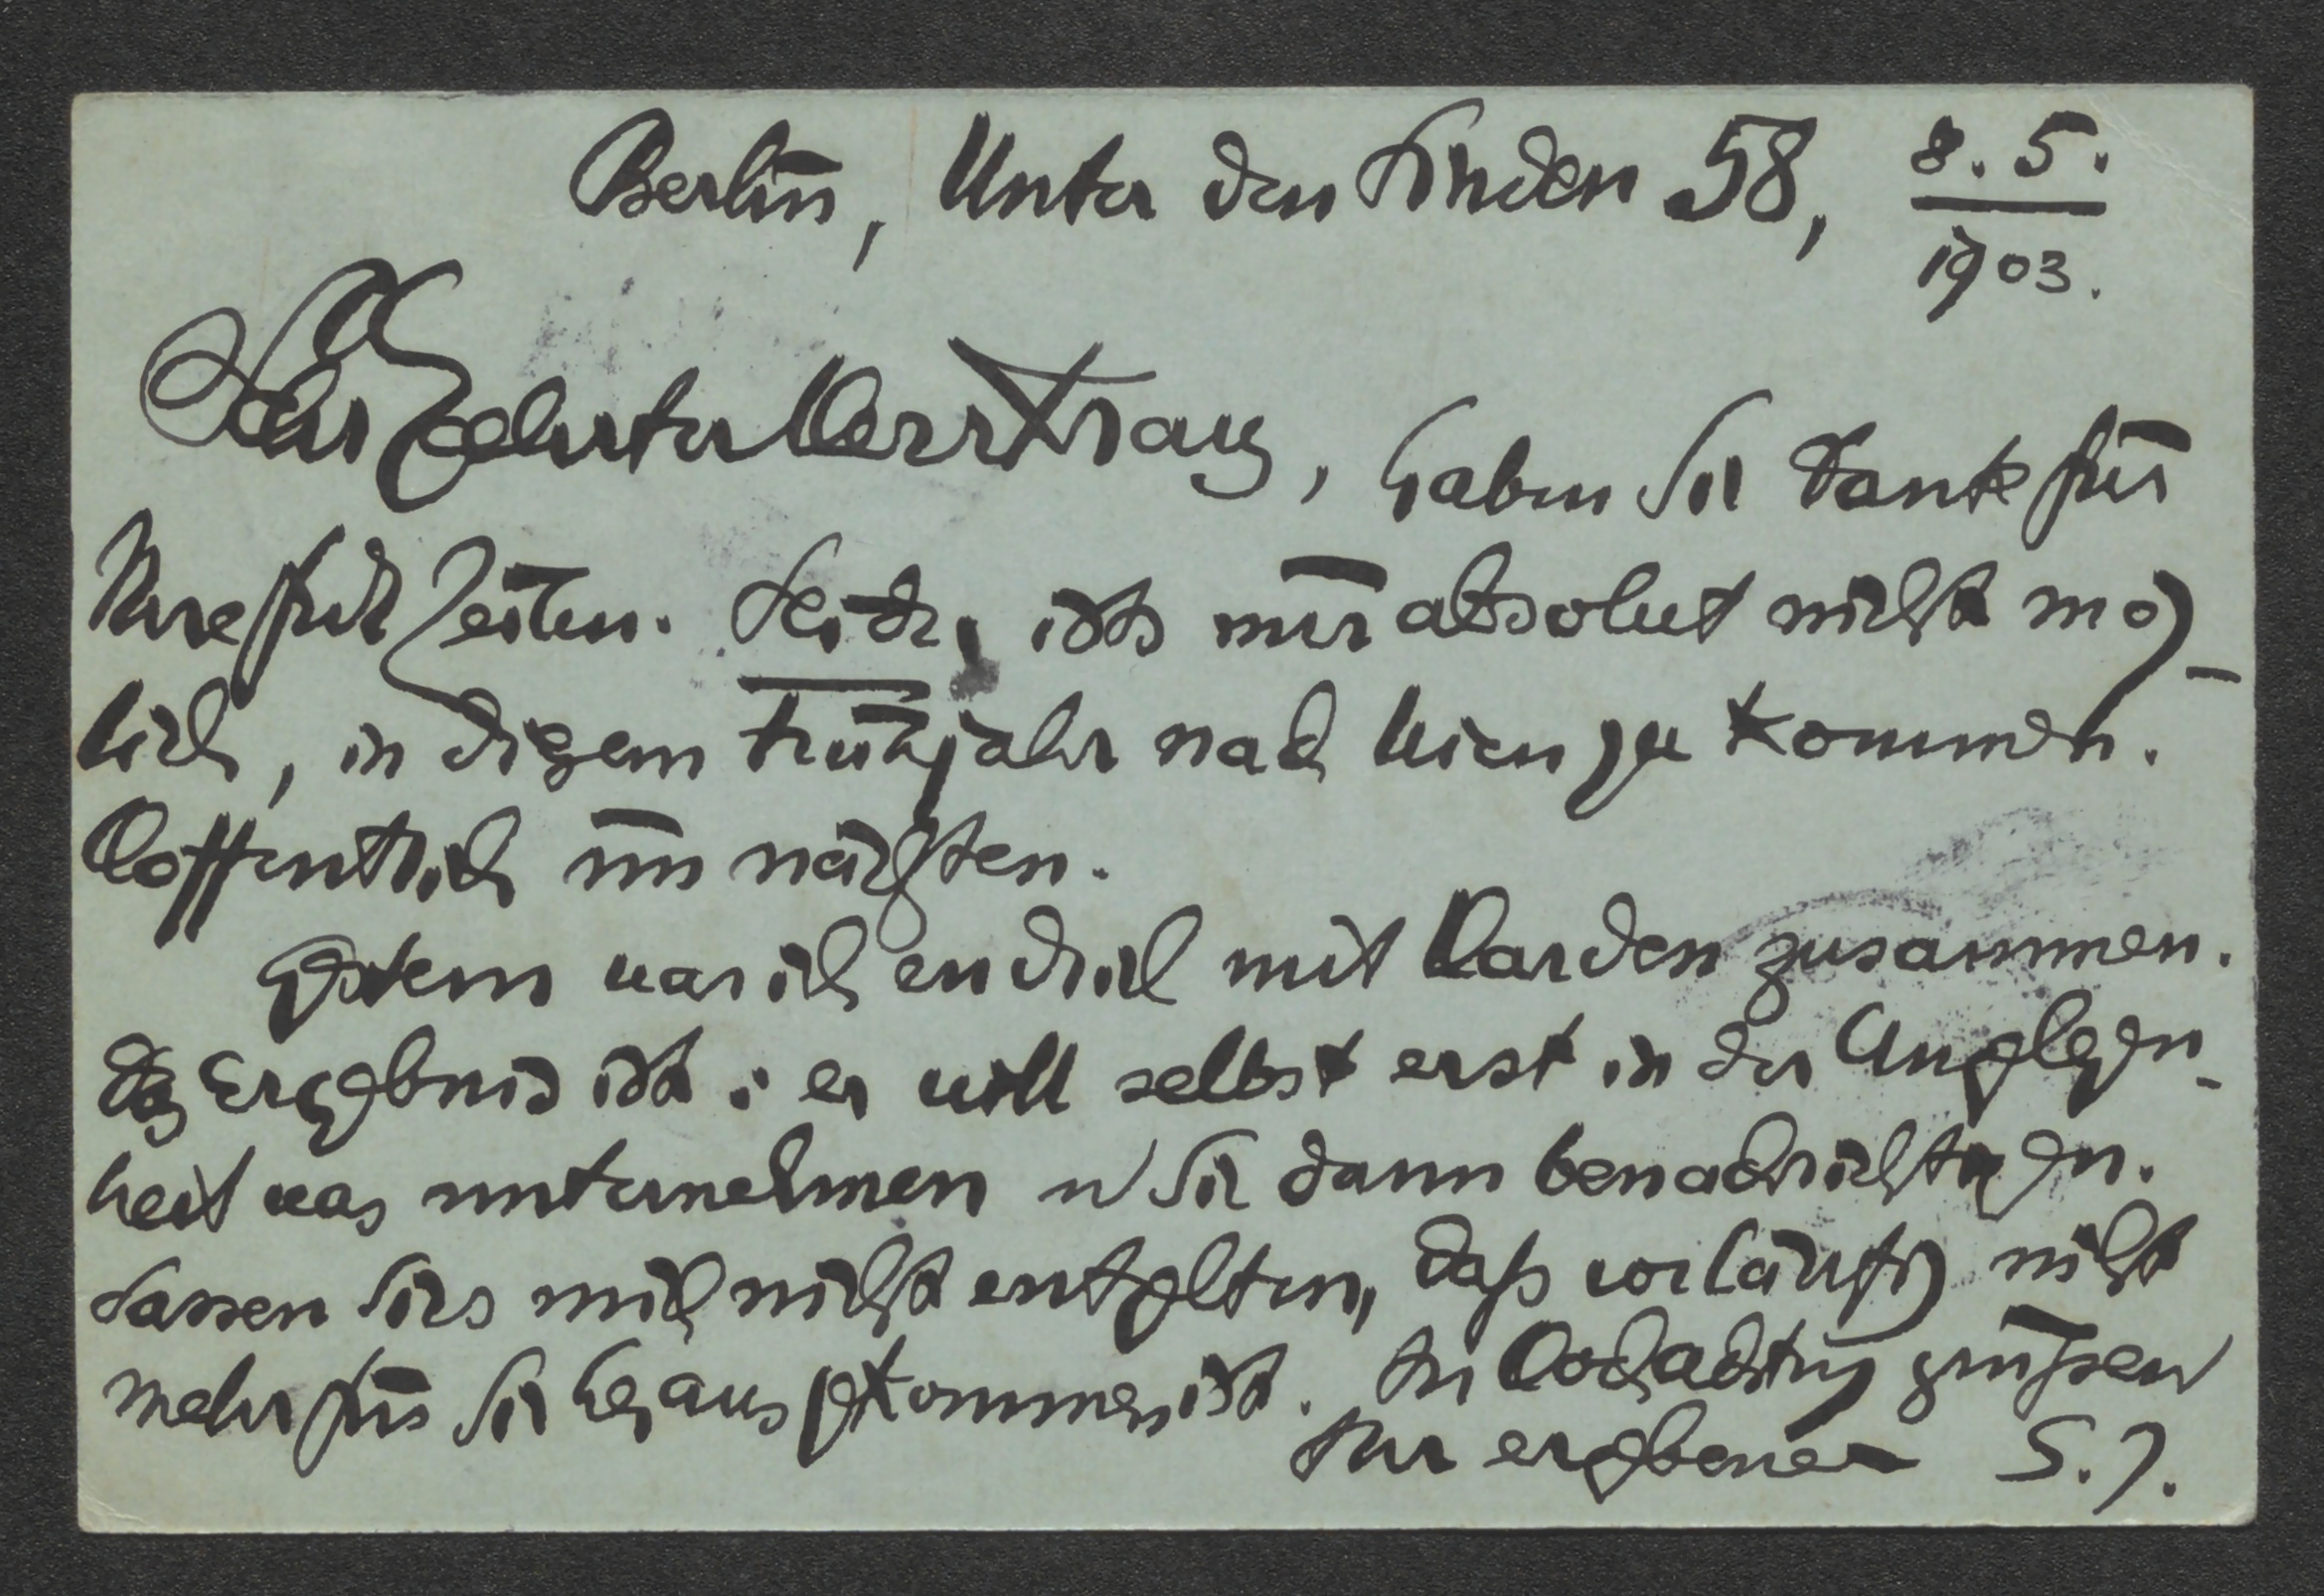 Berlin, Unter den Linden 58, 8. 5.
1903.
Sehr geehrter Herr Trau, haben Sie Dank für
Ihre frdl Zeilen. Leider ists mir absolut nicht mög-
lich, in diesem Frühjahr nach Wien zu kommen.
Hoffentlich im nächsten.
Gestern war ich endlich mit Harden zusammen.
Das Ergebnis ist: er will selbst erst in der Angelegen-
heit was unternehmen u Sie dann benachrichtigen.
Lassen Sies mich nicht entgelten, daß vorläufig nicht
mehr für Sie herausgekommen ist. In Hochachtung grüßend
Ihr ergebener S. J.